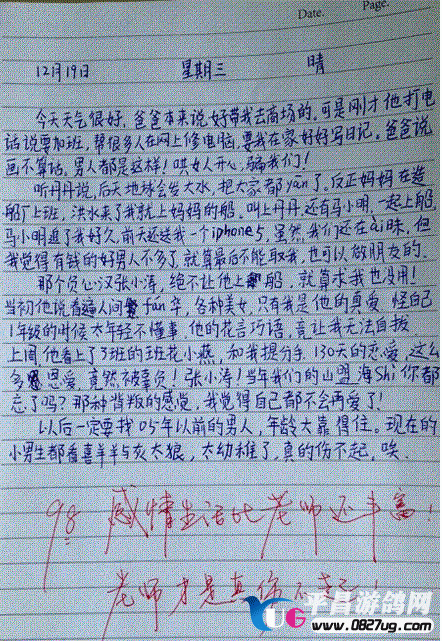 Date.
Page.
12月19日 星期三 晴
今天天气很好,爸爸本来说好带我去商场的,可是刚才他打电
话说要加班,帮很多人在网上修电脑,要我在家好好写日记。爸爸说
画不算话,男人都是这样!哄女人开心,骗我们!
听丹丹说,后天地球会发大水,把大家都yān了。反正妈妈在造
船厂上班,洪水来了我就上妈妈的船。叫上丹丹,还有马小明,一起上船,
马小明追了我好久,前天还送我一个iphone5,虽然我们还在ài昧,但
我觉得有钱的好男人不多了,就算最后不能取我,也可以做朋友的.
那个负心汉张小涛,绝不让他上船,就算求我也没用!
当初他说看遍人间fán华,各种美女,只有我是他的真爱.怪自己
1年级的时候太年轻不懂事,他的花言巧语,竟让我无法自拔.
上周他看上了3班的班花小燕,和我提分手.130天的恋爱,这么
多恩爱,竟然被辜负!张小涛!当年我们的山盟海Shi你都
忘了吗?那种背叛的感觉,我觉得自己都不会再爱了!
以后一定要找05年以前的男人,年龄大靠得住。现在的
小男生都看喜羊羊与灰太狼,太幼稚了,真的伤不起,唉.
98 感情生活比老师还丰富!
老师才是真伤不起!
YUG 平昌游鸽网
www.0827ug.com